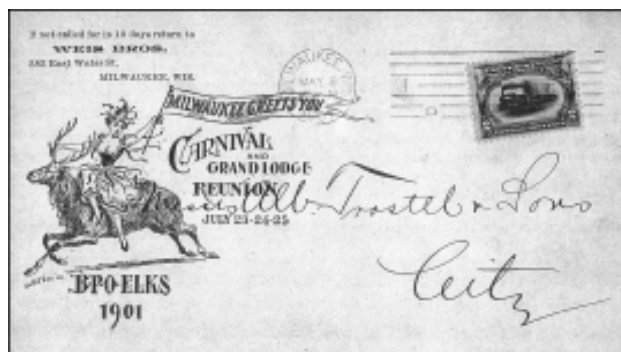 If not called for in 10 days return to
WEIS BROS.
383 East Water St.
MILWAUKEE, WIS.
MILWAUKEE
MAY
MILWAUKEE GREETS YOU
CARNIVAL
AND
GRAND LODGE
REUNION
JULY 23-24-25
Messrs Alb. Trostel & Sons
City
B.P.O. ELKS
1901